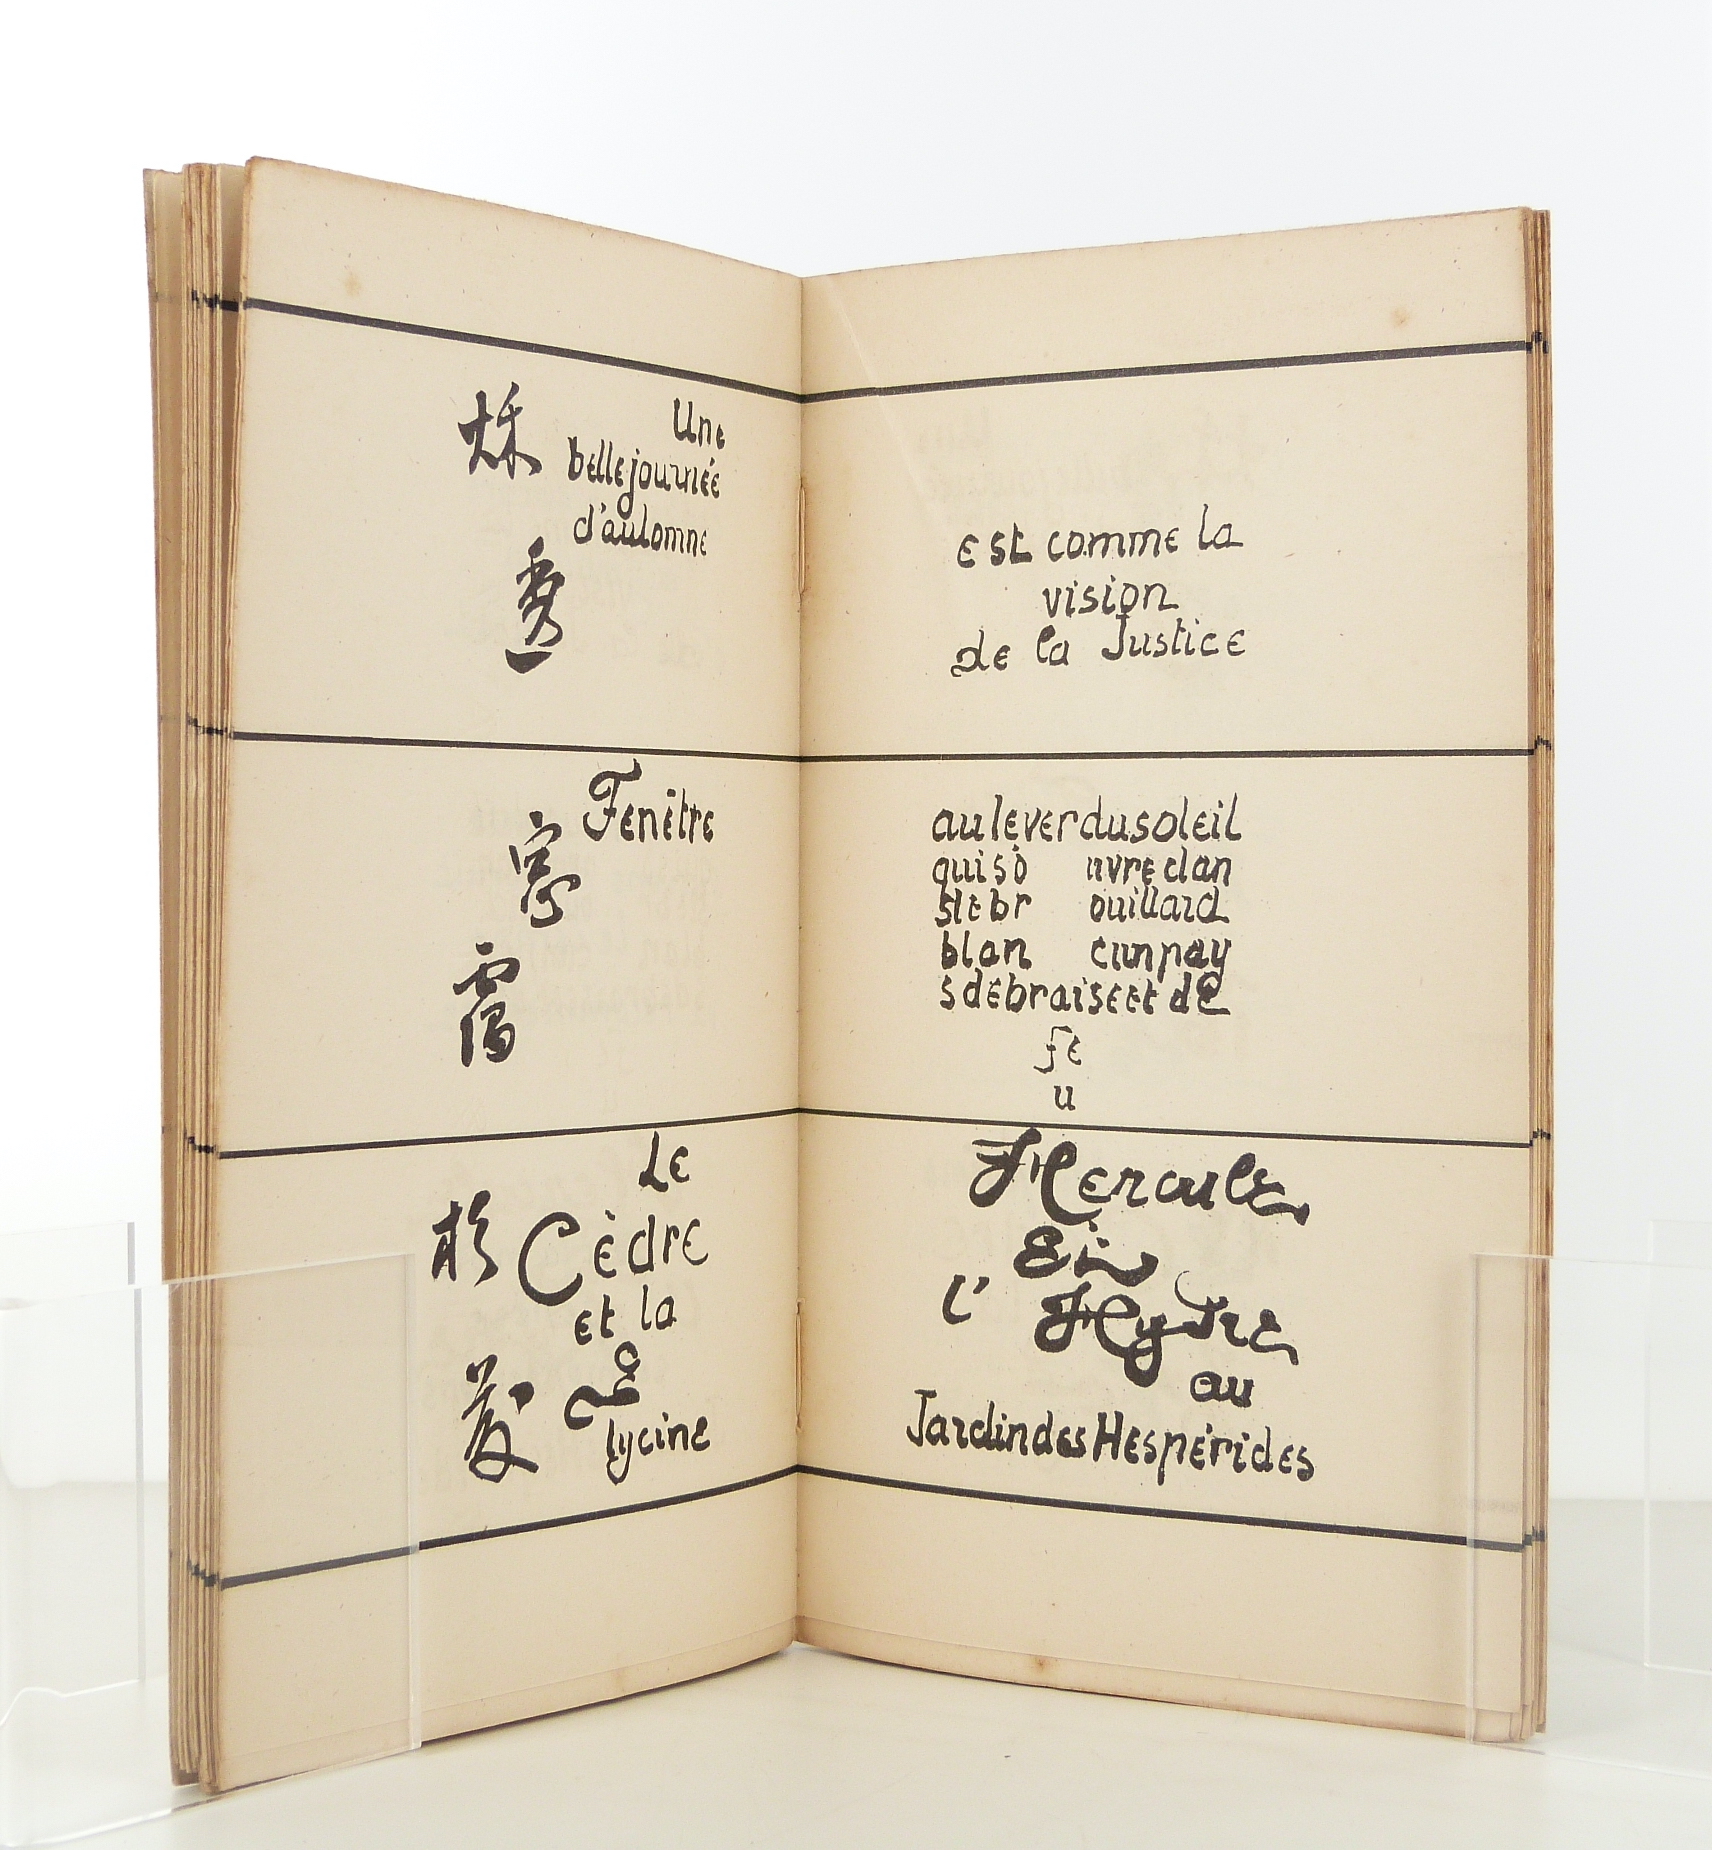 秌
Une
belle journée
d'automne
透
est comme la
vision
de la Justice
Fenêtre
窓
auleverdusoleil
quis'o uvredan
slebr ouillard
blan cunpay
sdebraiseet de
fe
u
Le
杉 Cèdre
et la
Glycine
Hercule
Et
l' Hydre
au
Jardin des Hespérides